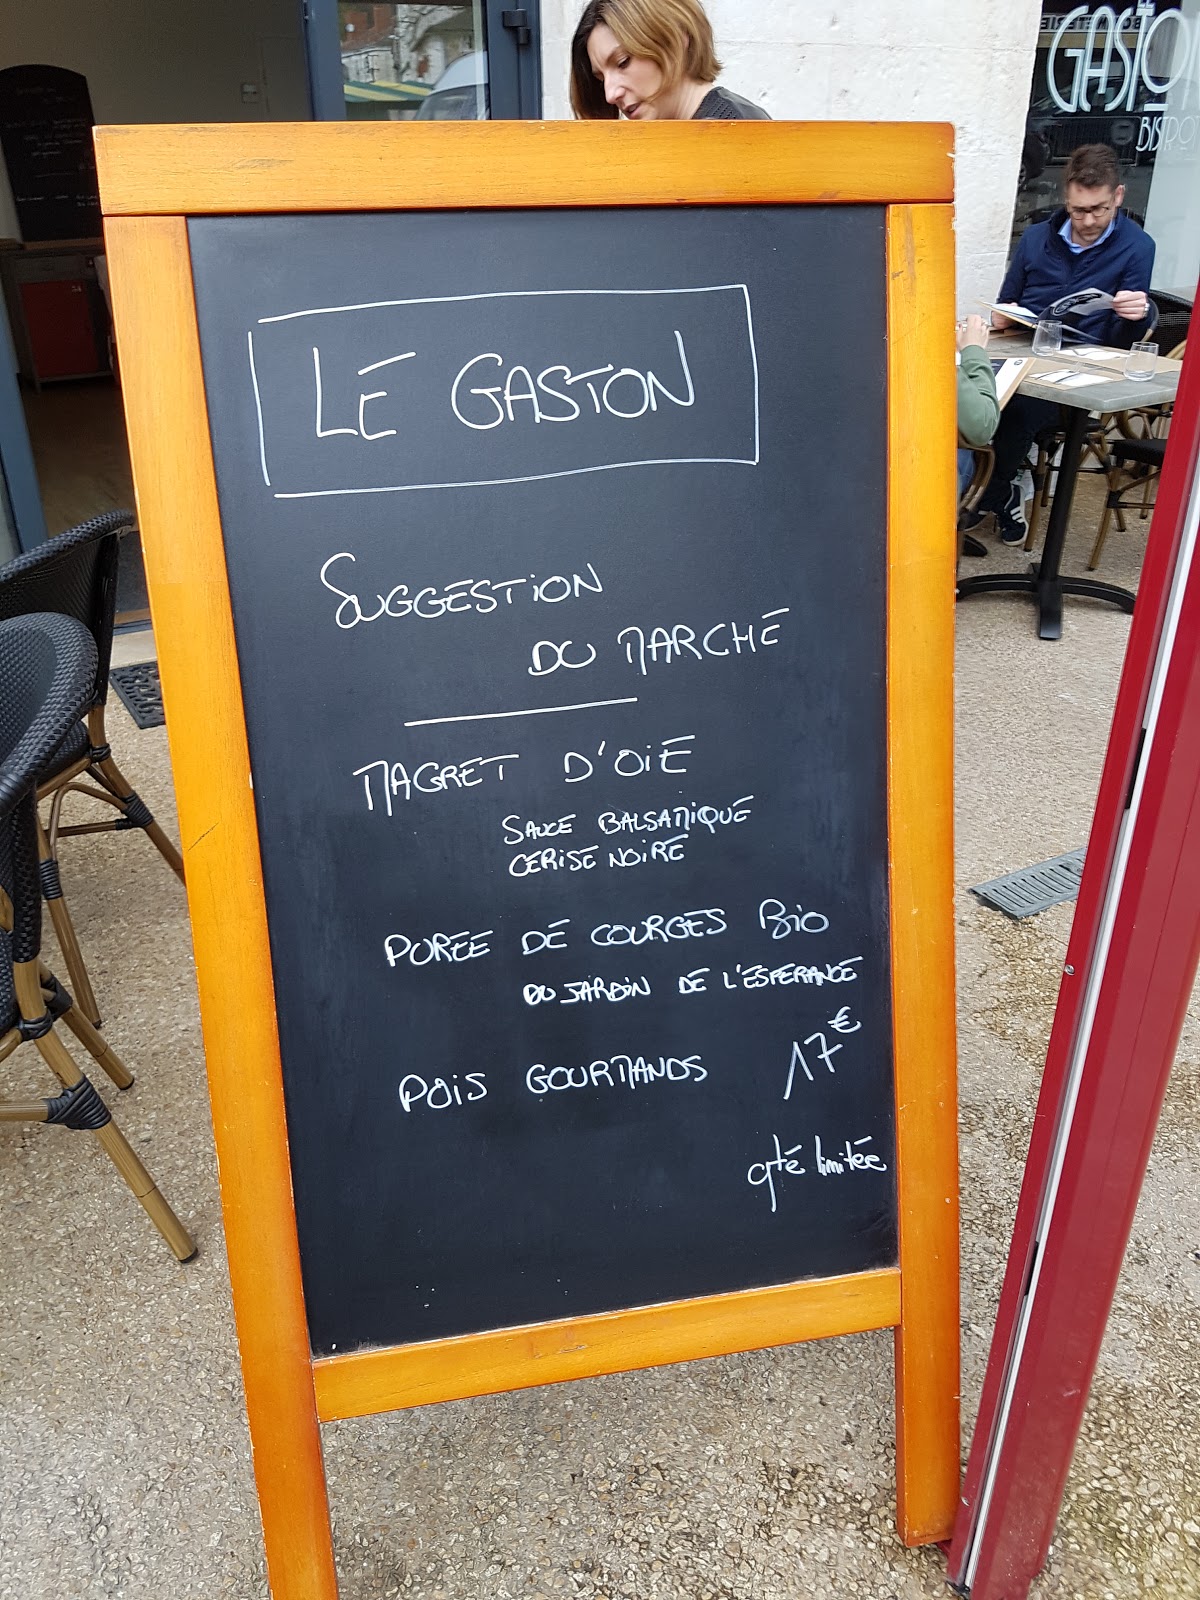 LE GASTON
SUGGESTION
DU MARCHE
MAGRET D'OIE
SAUCE BALSAMIQUE
CERISE NOIRE
PUREE DE COURGES BIO
DU JARDIN DE L'ESPERANCE
POIS GOURMANDS 17€
qté limitée
LE
GASTON
BISTROT